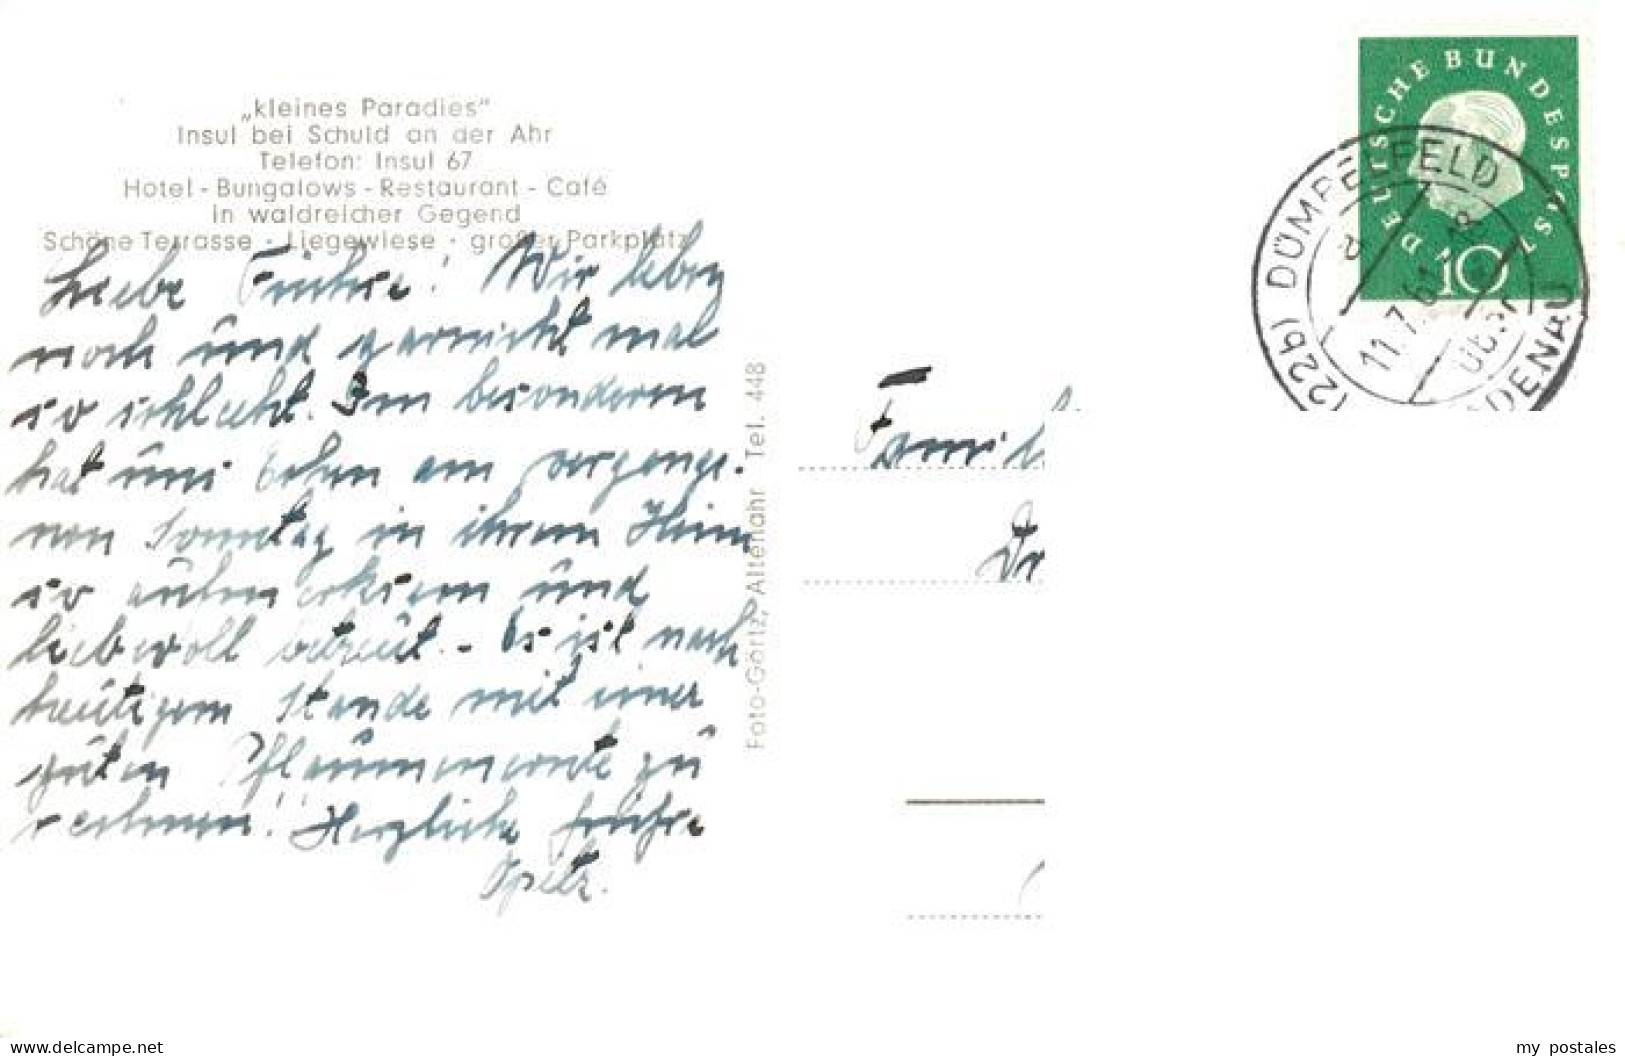 „kleines Paradies"
Insul bei Schuld an der Ahr
Telefon: Insul 67
Hotel - Bungalows - Restaurant - Café
in waldreicher Gegend
Schöne Terrasse - Liegewiese - großer Parkplatz
Liebe ! Wir leben
noch und garnicht mal
so schlecht. Im besonderen
hat uns am vergange-
nen Sonntag in ihrem Heim
so aufmerksam und
liebevoll betreut. - Es ist nach
heutigem Stande mit einer
guten Pflaumenernte zu
rechnen! Herzliche
Opitz.
Foto-Görtz, Altenahr Tel. 448
Famil
Dr
DEUTSCHE BUNDESPOST
10
(22b) DÜMPELFELD
a
11.7.61
DENAU
www.delcampe.net
my_postales